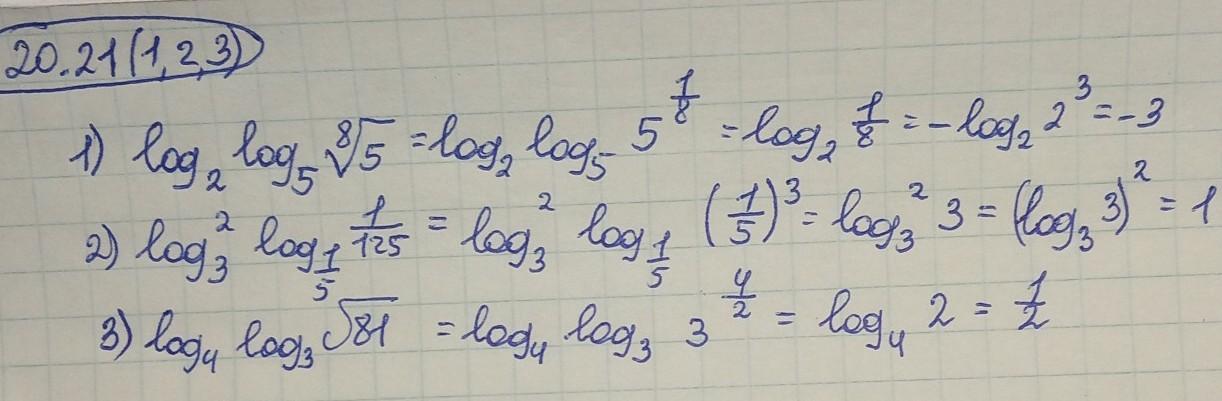 20.21(1,2,3)
1) log₂ log₅ ⁸√5 = log₂ log₅ 5^(1/8) = log₂ 1/8 = -log₂ 2³ = -3
2) log₃² log_(1/5) 1/125 = log₃² log_(1/5) (1/5)³ = log₃² 3 = (log₃ 3)² = 1
3) log₄ log₃ √81 = log₄ log₃ 3^(4/2) = log₄ 2 = 1/2